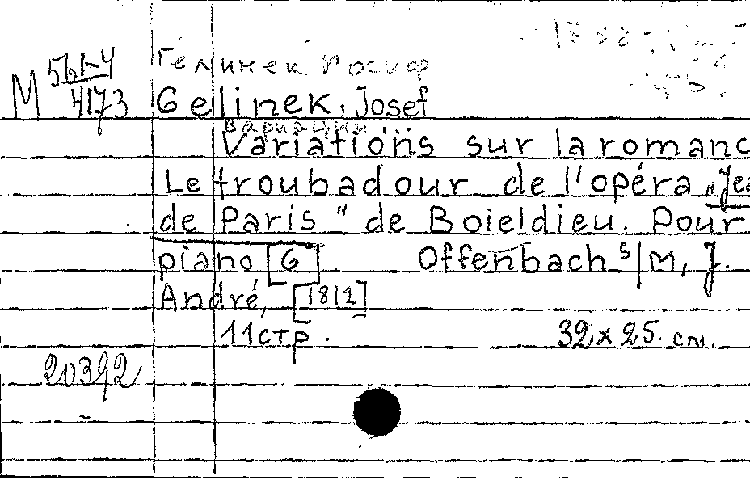 Гелинек Иосиф
М 561-4
4173
Gelinek, Josef
Вариации
Variations sur la romanc
Le troubadour de l'opéra „Jea
de Paris" de Boieldieu. Pour
piano [6] Offenbach s/M, J.
André, [1812]
11 стр. 32 x 25. см.
20392